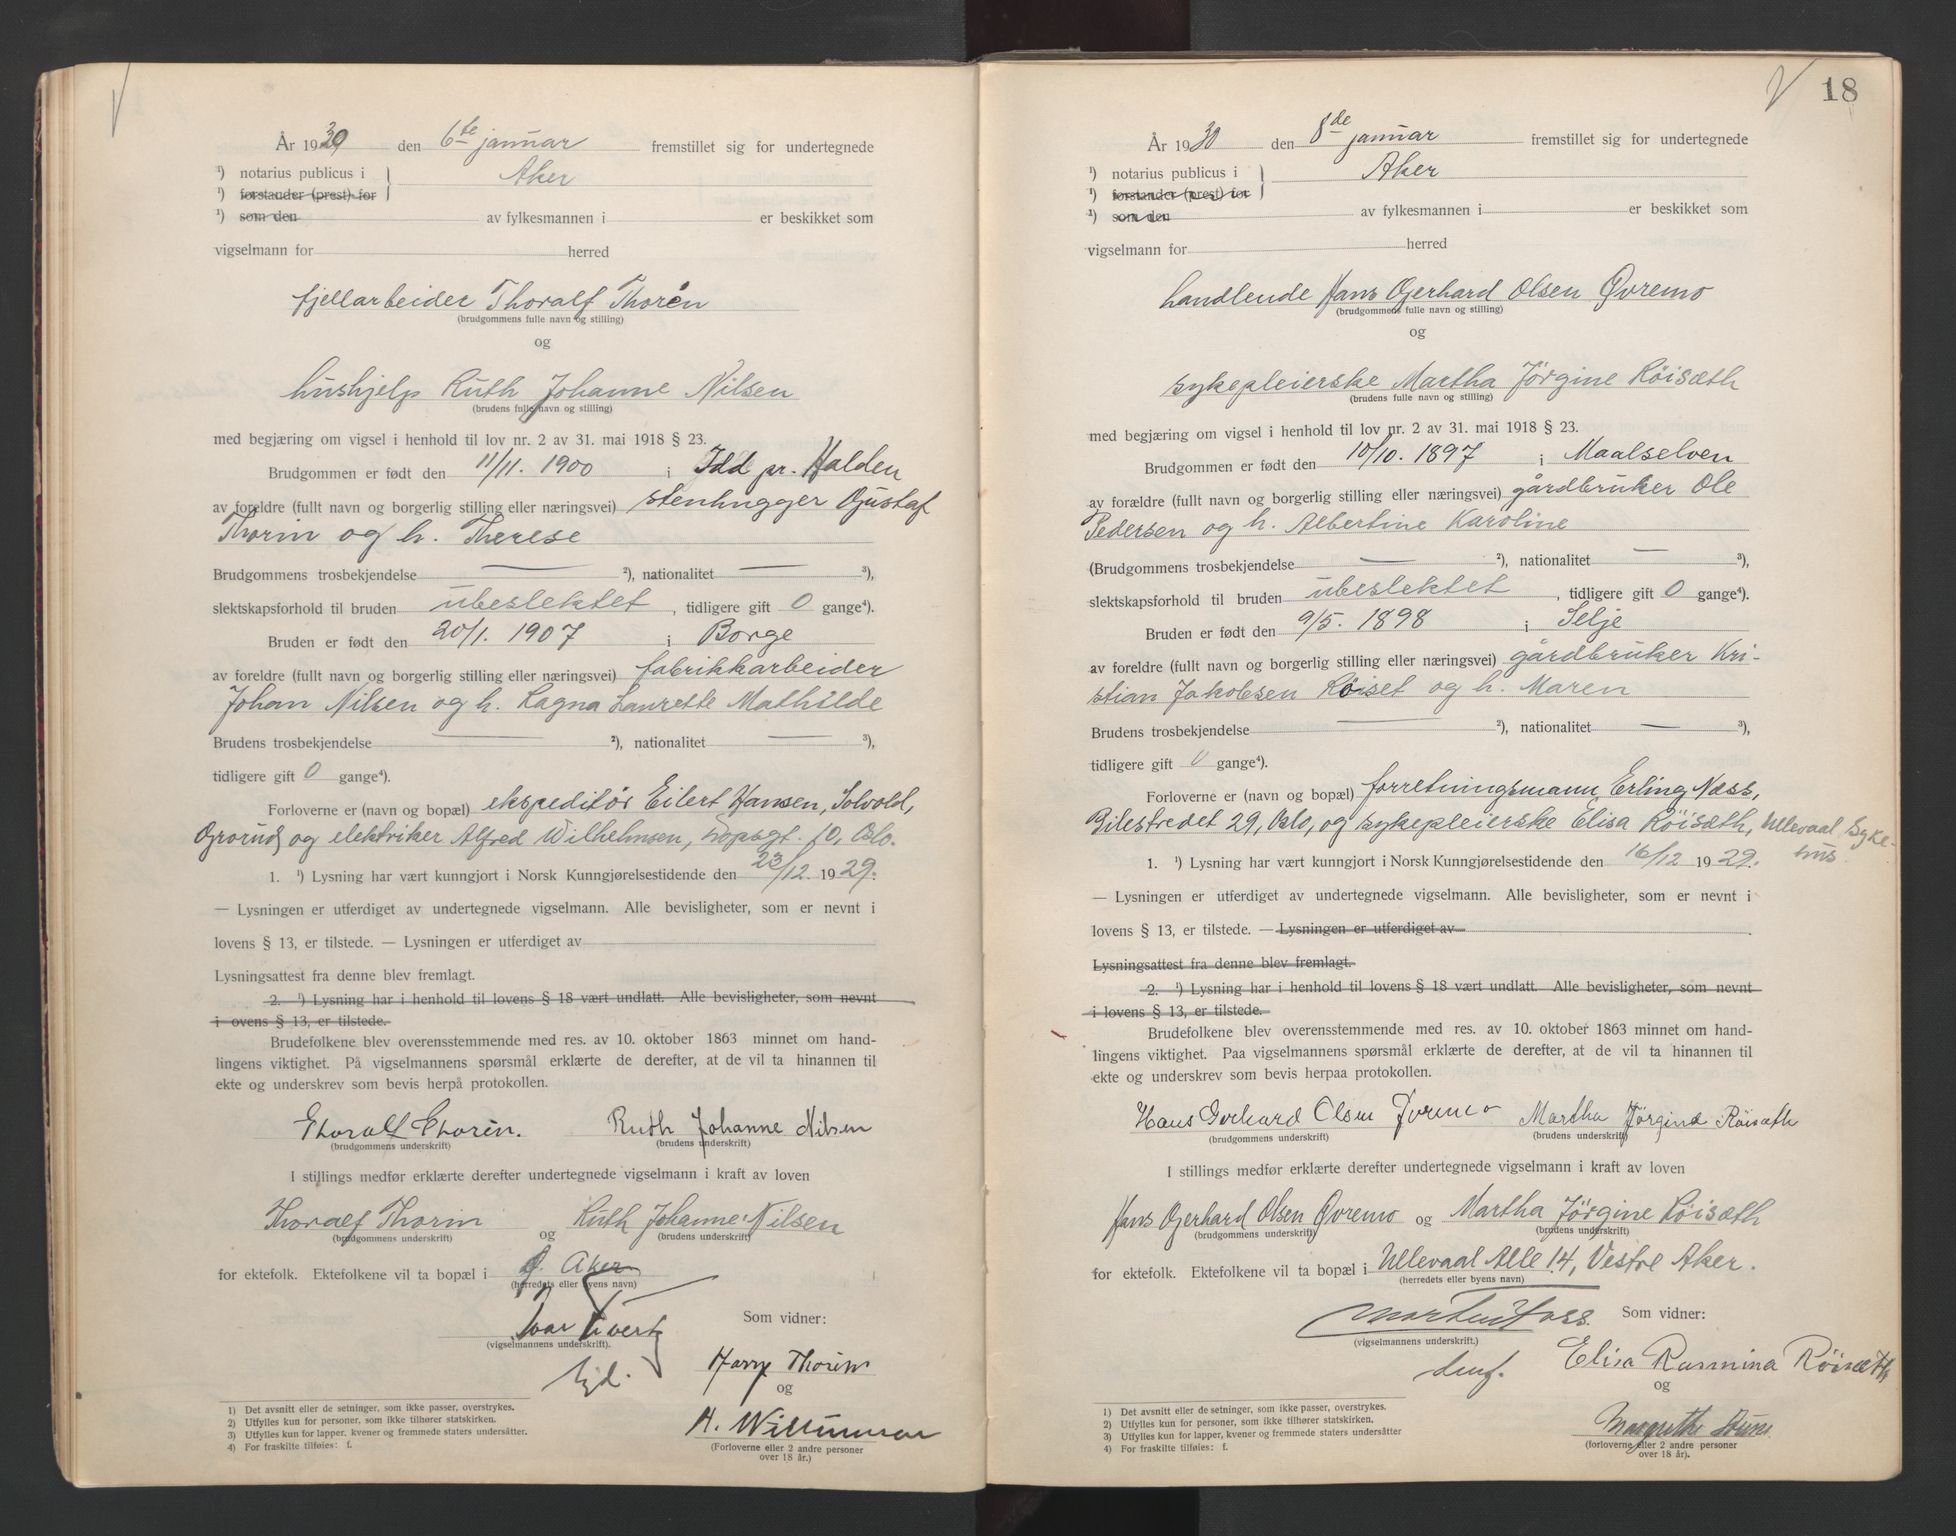 År 1930 den 6te januar fremstillet sig for undertegnede
¹) notarius publicus i } Aker
¹) forstander (prest) for
¹) som den av fylkesmannen i er beskikket som
vigselmann for herred
fjellarbeider Thoralf Thorén
(brudgommens fulle navn og stilling)
og
hushjelp Ruth Johanne Nilsen
(brudens fulle navn og stilling)
med begjæring om vigsel i henhold til lov nr. 2 av 31. mai 1918 § 23.
Brudgommen er født den 11/11. 1900 i Idd pr. Halden
av foreldre (fullt navn og borgerlig stilling eller næringsvei) stenhugger Gustaf
Thorin og h. Therese
Brudgommens trosbekjendelse — ²), nationalitet — ³),
slektskapsforhold til bruden ubeslektet, tidligere gift 0 gange⁴).
Bruden er født den 20/1. 1907 i Borge
av foreldre (fullt navn og borgerlig stilling eller næringsvei) fabrikkarbeider
Johan Nilsen og h. Ragna Laurette Mathilde
Brudens trosbekjendelse — ²), nationalitet — ³),
tidligere gift 0 gange⁴).
Forloverne er (navn og bopæl) ekspeditør Eilert Hansen, Solvold,
Grorud, og elektriker Alfred Wilhelmsen, 10, Oslo.
1. ¹) Lysning har vært kunngjort i Norsk Kunngjørelsestidende den 23/12. 1929.
— Lysningen er utferdiget av undertegnede vigselmann. Alle bevisligheter, som er nevnt i
lovens § 13, er tilstede. — Lysningen er utferdiget av
Lysningsattest fra denne blev fremlagt.
2. ¹) Lysning har i henhold til lovens § 18 vært undlatt. Alle bevisligheter, som nevnt
i ovens § 13, er tilstede.
Brudefolkene blev overensstemmende med res. av 10. oktober 1863 minnet om hand-
lingens viktighet. På vigselmannens spørsmål erklærte de derefter, at de vil ta hinannen til
ekte og underskrev som bevis herpå protokollen.
Thoralf Thorén. Ruth Johanne Nilsen
(brudgommens underskrift) (brudens underskrift)
I stillings medfør erklærte derefter undertegnede vigselmann i kraft av loven
Thoralf Thorin og Ruth Johanne Nilsen
(brudgommens underskrift) (brudens underskrift)
for ektefolk. Ektefolkene vil ta bopæl i Ø. Aker
(herredets eller byens navn)
Som vidner:
(vigselmannens underskrift).
Harry Thorin
og
(Forloverne eller 2 andre personer
over 18 år.)
1) Det avsnitt eller de setninger, som ikke passer, overstrykes.
2) Utfylles kun for personer, som ikke tilhører statskirken.
3) Utfylles kun for lapper, kvener og fremmede staters undersåtter.
4) For fraskilte tilføies: f.
18
År 1930 den 8de januar fremstillet sig for undertegnede
¹) notarius publicus i } Aker
¹) forstander (prest) i
¹) som den av fylkesmannen i er beskikket som
vigselmann for herred
handlende Hans Gerhard Olsen Øvremo
(brudgommens fulle navn og stilling)
og
sykepleierske Martha Jørgine Røisæth
(brudens fulle navn og stilling)
med begjæring om vigsel i henhold til lov nr. 2 av 31. mai 1918 § 23.
Brudgommen er født den 10/10. 1897 i Maalselven
av forældre (fullt navn og borgerlig stilling eller næringsvei) gårdbruker Ole
Pedersen og h. Albertine Karoline
(Brudgommens trosbekjendelse — ²), nationalitet — ³),
slektskapsforhold til bruden ubeslektet, tidligere gift 0 gange⁴).
Bruden er født den 9/5. 1898 i Selje
av foreldre (fullt navn og borgerlig stilling eller næringsvei) gårdbruker Kri-
stian Jakobsen Røiset og h. Maren
Brudens trosbekjendelse — ²), nationalitet — ³),
tidligere gift 0 gange⁴).
Forloverne er (navn og bopæl) forretningsmann Erling Næss,
Pilestredet 29, Oslo, og sykepleierske Elisa Røisæth, Ullevaal Syke-
hus.
1. ¹) Lysning har vært kunngjort i Norsk Kunngjørelsestidende den 16/12 1929.
— Lysningen er utferdiget av undertegnede vigselmann. Alle bevisligheter, som er nevnt i
lovens § 13, er tilstede. — Lysningen er utferdiget av
Lysningsattest fra denne blev fremlagt.
2. ¹) Lysning har i henhold til lovens § 18 vært undlatt. Alle bevisligheter, som nevnt
i lovens § 13, er tilstede.
Brudefolkene blev overensstemmende med res. av 10. oktober 1863 minnet om hand-
lingens viktighet. Paa vigselmannens spørsmål erklærte de derefter, at de vil ta hinannen til
ekte og underskrev som bevis herpaa protokollen.
Hans Gerhard Olsen Øvremo Martha Jørgine Røisæth
(brudgommens underskrift) (brudens underskrift)
I stillings medfør erklærte derefter undertegnede vigselmann i kraft av loven
Hans Gerhard Olsen Øvremo og Martha Jørgine Røisæth
(brudgommens underskrift) (brudens underskrift)
for ektefolk. Ektefolkene vil ta bopæl i Ullevaal Alle 14, Vestre Aker.
(herredets eller byens navn)
Som vidner:
(vigselmannens underskrift.)
Elisa Rasmina Røisæth
og
Margrethe
(forloverne eller 2 andre personer
over 18 år).
1) Det avsnitt eller de setninger, som ikke passer, overstrykes.
2) Utfylles kun for personer, som ikke tilhører statskirken.
3) Utfylles kun for lapper, kvener og fremmede staters undersåtter
4) For fraskilte tilføies: f.